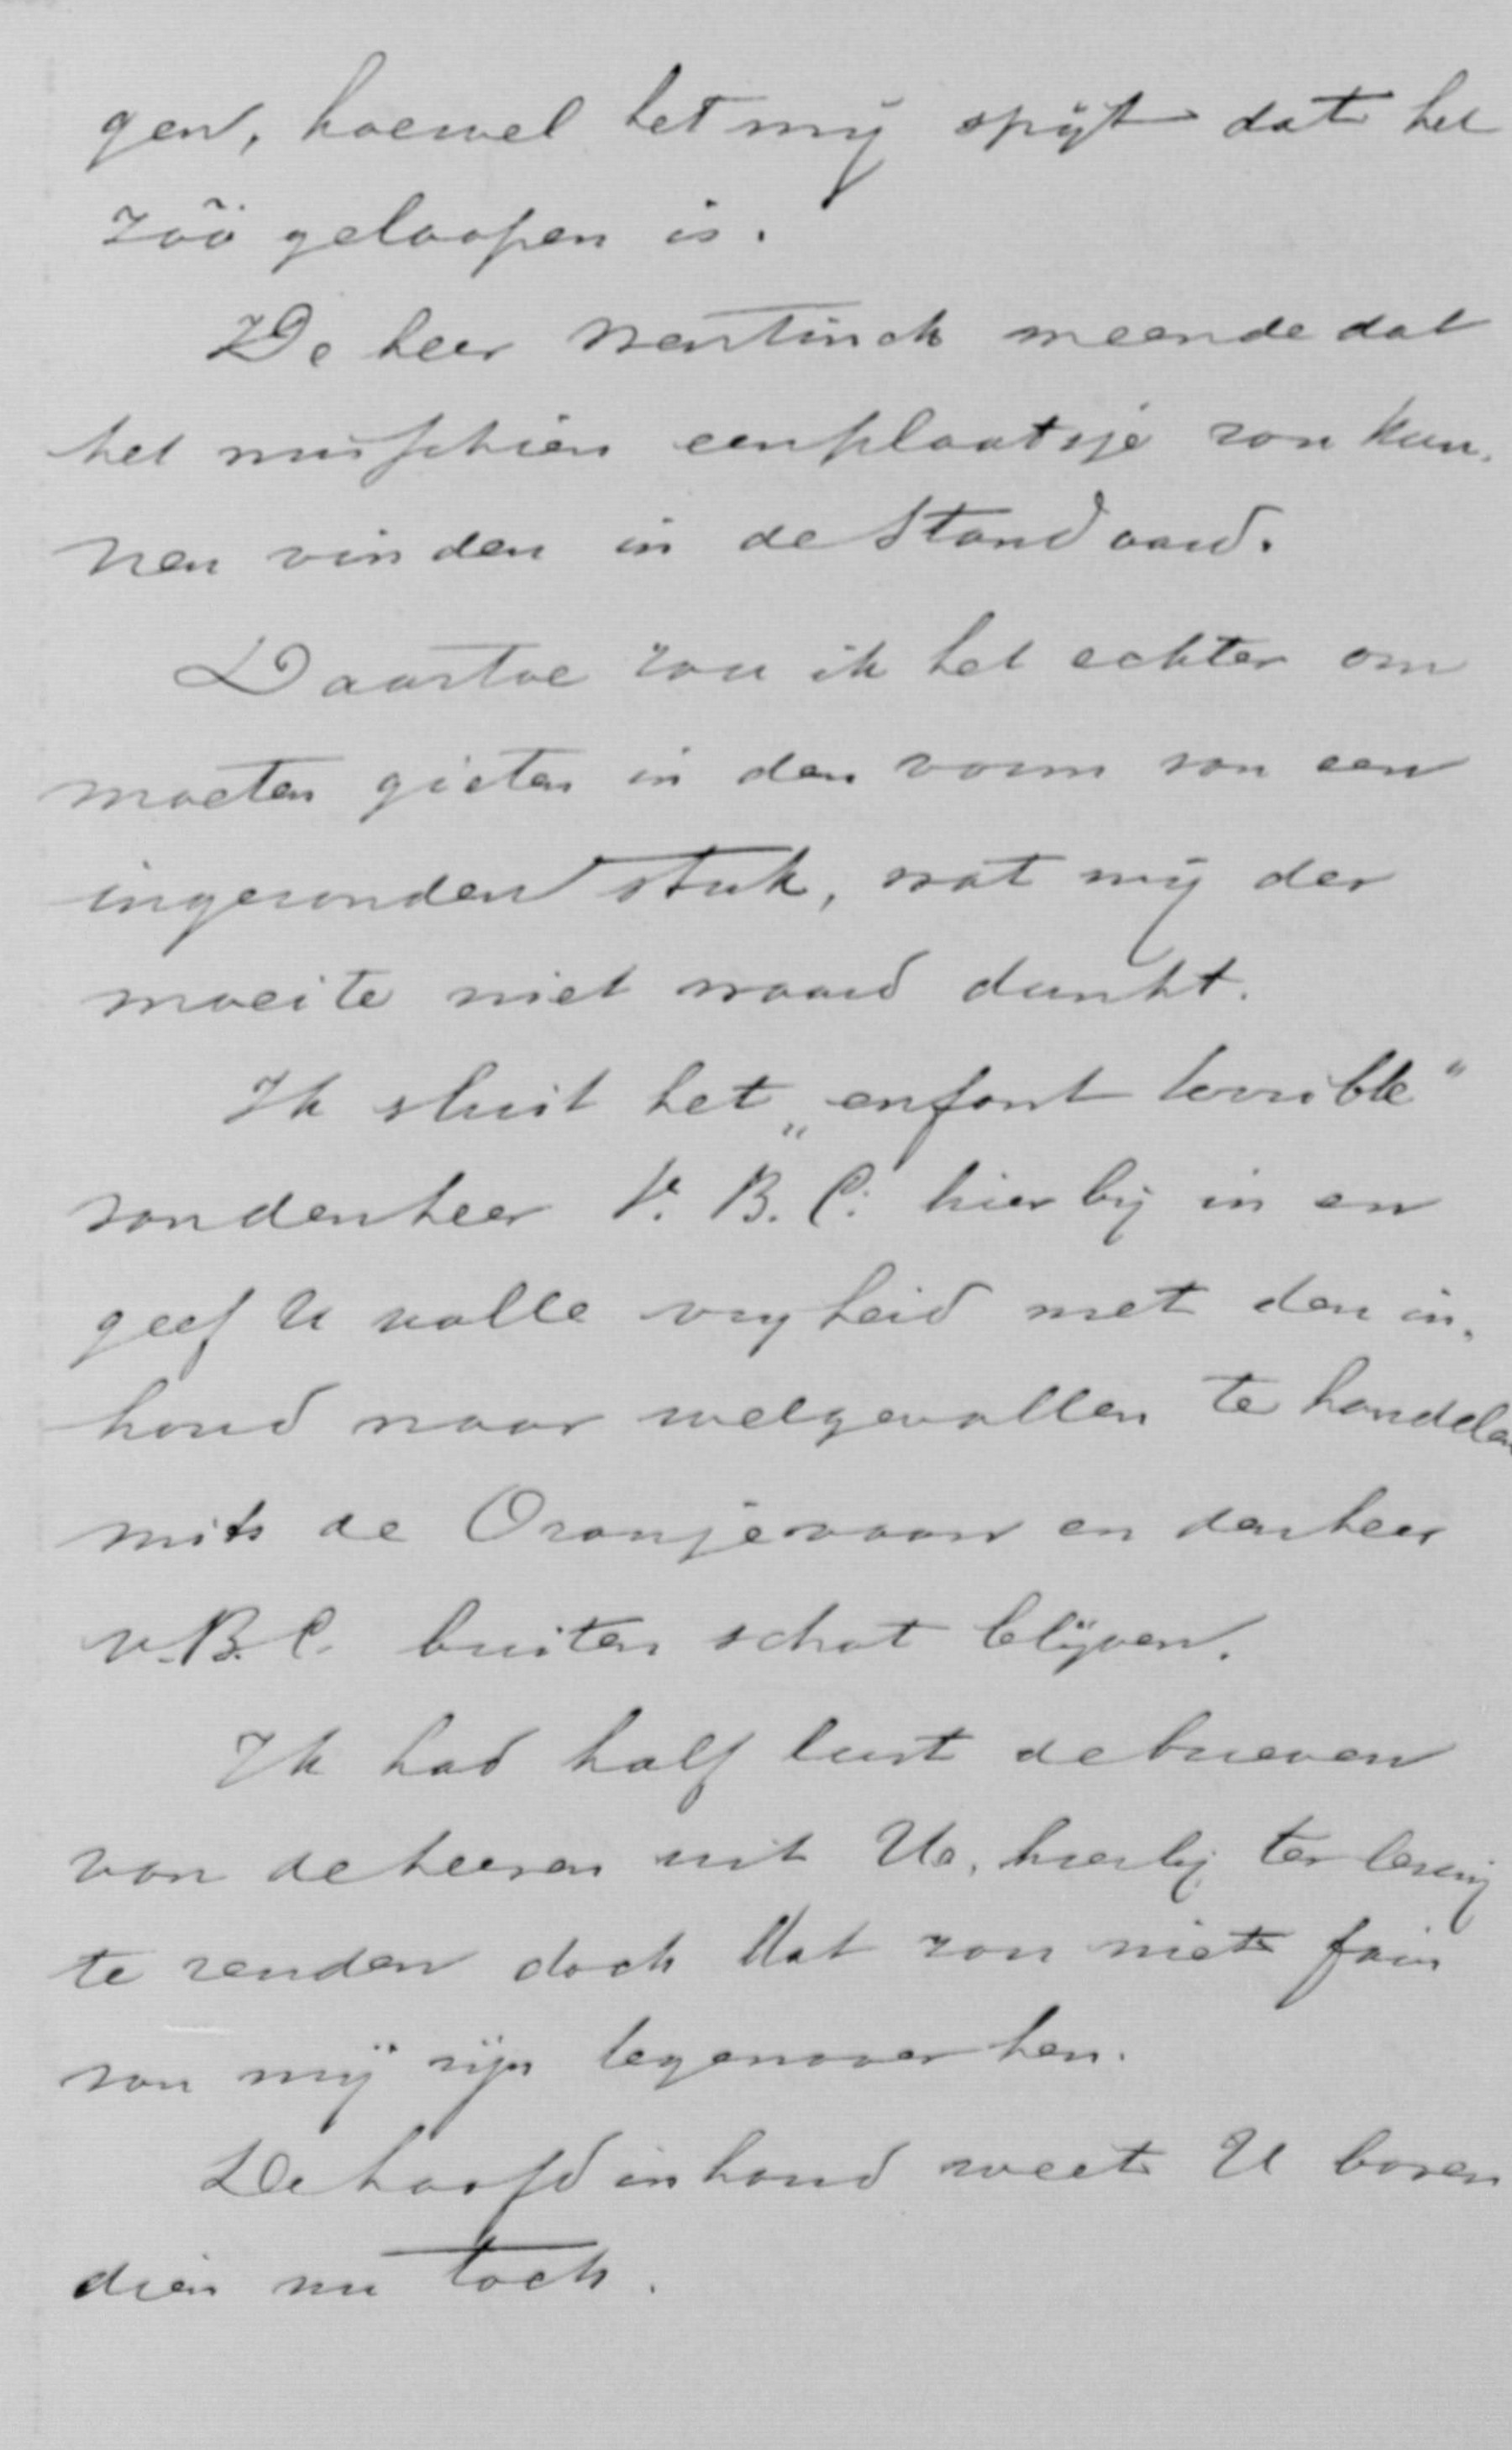 gen, hoewel het mij spijt dat het
zóó geloopen is.
De heer Wentinck meende dat
het misschien een plaatsje zou kun-
nen vinden in de Standaard.
Daartoe zou ik het echter om
moeten gieten in den vorm van een
ingezonden stuk, wat mij der
moeite niet waard dunkt.
Ik sluit het „enfant terrible"
van den heer V. B. C. hierbij in en
geef U volle vrijheid met den in-
houd naar welgevallen te handelen
mits de Oranjevaan en den heer
v. B. C. buiten schot blijven.
Ik had half lust de brieven
van de heeren uit Ue. hierbij ter lezing
te zenden doch dat zou niet fair
van mij zijn tegenover hen.
De hoofdinhoud weet U boven
dien nu toch.